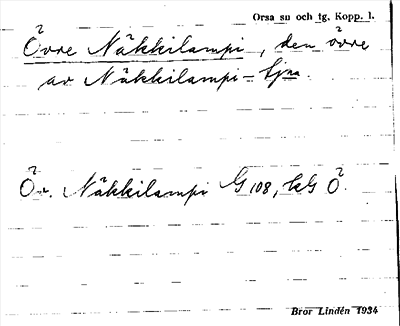 Orsa su och tg. Kopp. l.
Övre Näkkilampi, den övre
av Näkkilampi-tjna.
Öv. Näkkilampi G 108, kG Ö.
Bror Lindén 1934